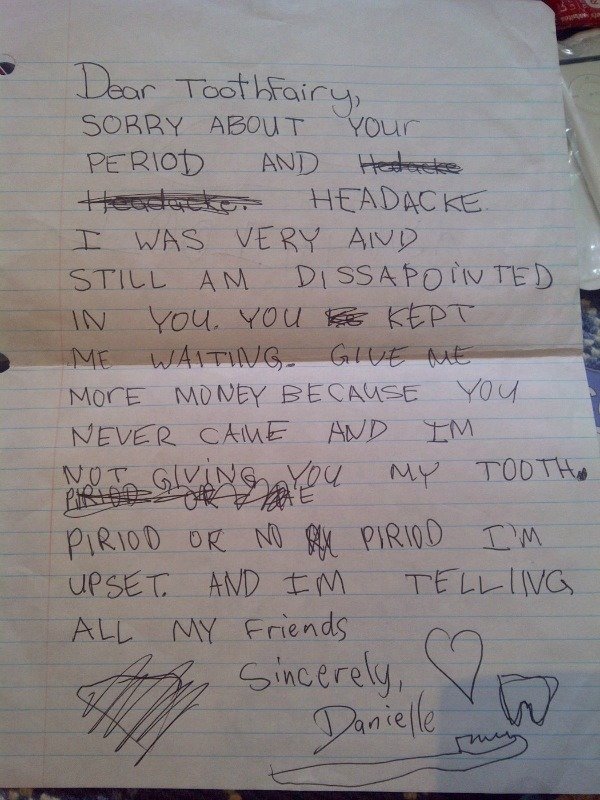 Dear Toothfairy,
SORRY ABOUT YOUr
PERIOD AND Hedacke
Headacke. HEADACKE
I WAS VERY AND
STILL AM DISSAPOINTED
IN YOU. YOU KEPT
ME WAITING. GIVE ME
MOrE MONEY BECAUSE YOU
NEVER CAME AND IM
NOT GIVING YOU MY TOOTH.
PIRIOD OR
PIRIOD OR NO PIRIOD I'M
UPSET. AND IM TELLING
ALL MY Friends
Sincerely,
Danielle